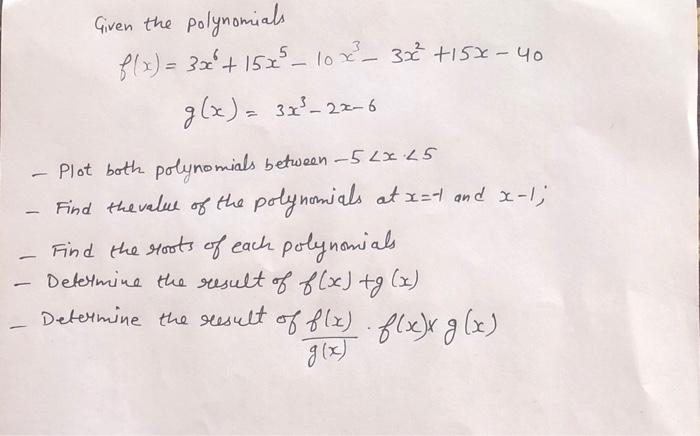 Given the polynomials
f(x) = 3x⁶ + 15x⁵ - 10x³ - 3x² + 15x - 40
g(x) = 3x³ - 2x - 6
- Plot both polynomials between -5 < x < 5
- Find the value of the polynomials at x=-1 and x-1;
- Find the roots of each polynomials
- Determine the result of f(x) + g(x)
- Determine the result of f(x)/g(x) · f(x) x g(x)